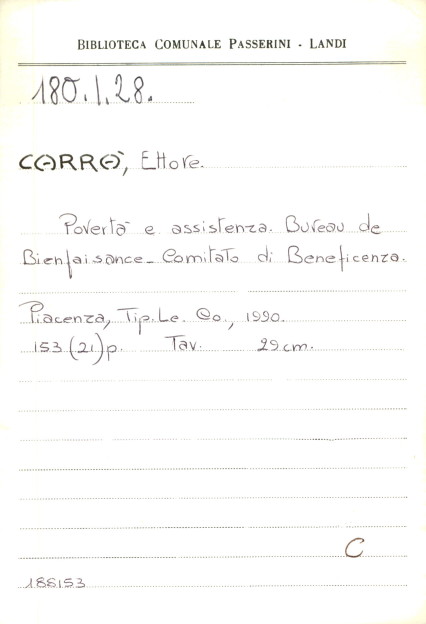 BIBLIOTECA COMUNALE PASSERINI - LANDI
180.I.28.
CARRÀ, Ettore.
Povertà e assistenza. Bureau de
Bienfaisance - Comitato di Beneficenza.
Piacenza, Tip.Le. Co., 1990.
153 (21) p. Tav. 29 cm.
C
188153